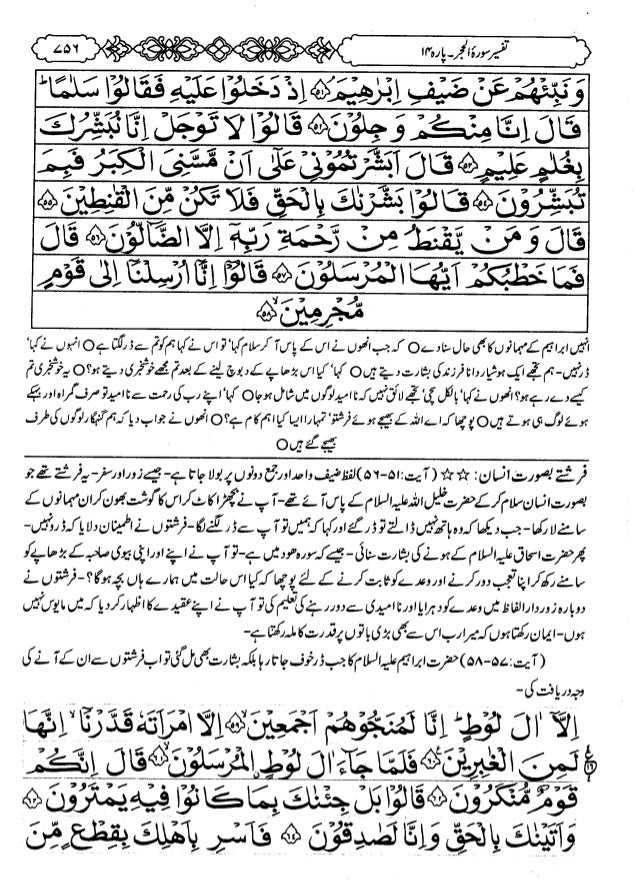 تفسیر سورۂ الحجر۔ پارہ ۱۴
۷۵۶
وَنَبِّئْهُمْ عَنْ ضَيْفِ اِبْرٰهِيْمَ ﴿۵۱﴾ اِذْ دَخَلُوْا عَلَيْهِ فَقَالُوْا سَلٰمًا ؕ
قَالَ اِنَّا مِنْكُمْ وَجِلُوْنَ ﴿۵۲﴾ قَالُوْا لَا تَوْجَلْ اِنَّا نُبَشِّرُكَ
بِغُلٰمٍ عَلِيْمٍ ﴿۵۳﴾ قَالَ اَبَشَّرْتُمُوْنِيْ عَلٰٓى اَنْ مَّسَّنِيَ الْكِبَرُ فَبِمَ
تُبَشِّرُوْنَ ﴿۵۴﴾ قَالُوْا بَشَّرْنٰكَ بِالْحَقِّ فَلَا تَكُنْ مِّنَ الْقٰنِطِيْنَ ﴿۵۵﴾
قَالَ وَمَنْ يَّقْنَطُ مِنْ رَّحْمَةِ رَبِّهٖٓ اِلَّا الضَّآلُّوْنَ ﴿۵۶﴾ قَالَ
فَمَا خَطْبُكُمْ اَيُّهَا الْمُرْسَلُوْنَ ﴿۵۷﴾ قَالُوْٓا اِنَّآ اُرْسِلْنَآ اِلٰى قَوْمٍ
مُّجْرِمِيْنَ ﴿۵۸﴾
انہیں ابراہیم کے مہمانوں کا بھی حال سنا دے ○ کہ جب انھوں نے اس کے پاس آ کر سلام کہا' تو اس نے کہا ہم کو تم سے ڈر لگتا ہے ○ انہوں نے کہا'
ڈر نہیں۔ ہم تجھے ایک ہوشیار دانا فرزند کی بشارت دیتے ہیں ○ کہا' کیا اس بڑھاپے کے دبوچ لینے کے بعد تم مجھے خوشخبری دیتے ہو؟ یہ خوشخبری تم
کیسے دے رہے ہو؟ انھوں نے کہا' بالکل سچی' تجھے لائق نہیں کہ ناامید لوگوں میں شامل ہو جا ○ کہا' اپنے رب کی رحمت سے ناامید تو صرف گمراہ اور بہکے
ہوئے لوگ ہی ہوتے ہیں ○ پوچھا کہ اے اللہ کے بھیجے ہوئے فرشتو' تمہارا ایسا کیا اہم کام ہے؟ ○ انھوں نے جواب دیا کہ ہم گنہگار لوگوں کی طرف
بھیجے گئے ہیں ○
فرشتے بصورت انسان: ☆☆ (آیت: ۵۱-۵۶) لفظ ضیف واحد اور جمع دونوں پر بولا جاتا ہے۔ جیسے زور اور سفر۔ یہ فرشتے تھے جو
بصورت انسان سلام کر کے حضرت خلیل اللہ علیہ السلام کے پاس آئے تھے۔ آپ نے بچھڑا کاٹ کر اس کا گوشت بھون کر ان مہمانوں کے
سامنے لا رکھا۔ جب دیکھا کہ وہ ہاتھ نہیں ڈالتے تو ڈر گئے اور کہا کہ ہمیں تو آپ سے ڈر لگنے لگا۔ فرشتوں نے اطمینان دلایا کہ ڈرو نہیں۔
پھر حضرت اسحاق علیہ السلام کے ہونے کی بشارت سنائی۔ جیسے کہ سورہ ھود میں ہے۔ تو آپ نے اپنے اور اپنی بیوی صاحبہ کے بڑھاپے کو
سامنے رکھ کر اپنا تعجب دور کرنے اور وعدے کو ثابت کرنے کے لئے پوچھا کہ کیا اس حالت میں ہمارے ہاں بچہ ہوگا؟۔ فرشتوں نے
دوبارہ زوردار الفاظ میں وعدے کو دہرایا اور ناامیدی سے دور رہنے کی تعلیم کی تو آپ نے اپنے عقیدے کا اظہار کر دیا کہ میں مایوس نہیں
ہوں۔ ایمان رکھتا ہوں کہ میرا رب اس سے بھی بڑی باتوں پر قدرت کاملہ رکھتا ہے۔
(آیت: ۵۷-۵۸) حضرت ابراہیم علیہ السلام کا جب ڈر خوف جاتا رہا بلکہ بشارت بھی مل گئی تو اب فرشتوں سے ان کے آنے کی
وجہ دریافت کی۔
اِلَّآ اٰلَ لُوْطٍ ؕ اِنَّا لَمُنَجُّوْهُمْ اَجْمَعِيْنَ ﴿۵۹﴾ اِلَّا امْرَاَتَهٗ قَدَّرْنَآ ۙ اِنَّهَا
لَمِنَ الْغٰبِرِيْنَ ﴿۶۰﴾ فَلَمَّا جَآءَ اٰلَ لُوْطِ اِۨلْمُرْسَلُوْنَ ﴿۶۱﴾ قَالَ اِنَّكُمْ
قَوْمٌ مُّنْكَرُوْنَ ﴿۶۲﴾ قَالُوْا بَلْ جِئْنٰكَ بِمَا كَانُوْا فِيْهِ يَمْتَرُوْنَ ﴿۶۳﴾
وَاَتَيْنٰكَ بِالْحَقِّ وَاِنَّا لَصٰدِقُوْنَ ﴿۶۴﴾ فَاَسْرِ بِاَهْلِكَ بِقِطْعٍ مِّنَ